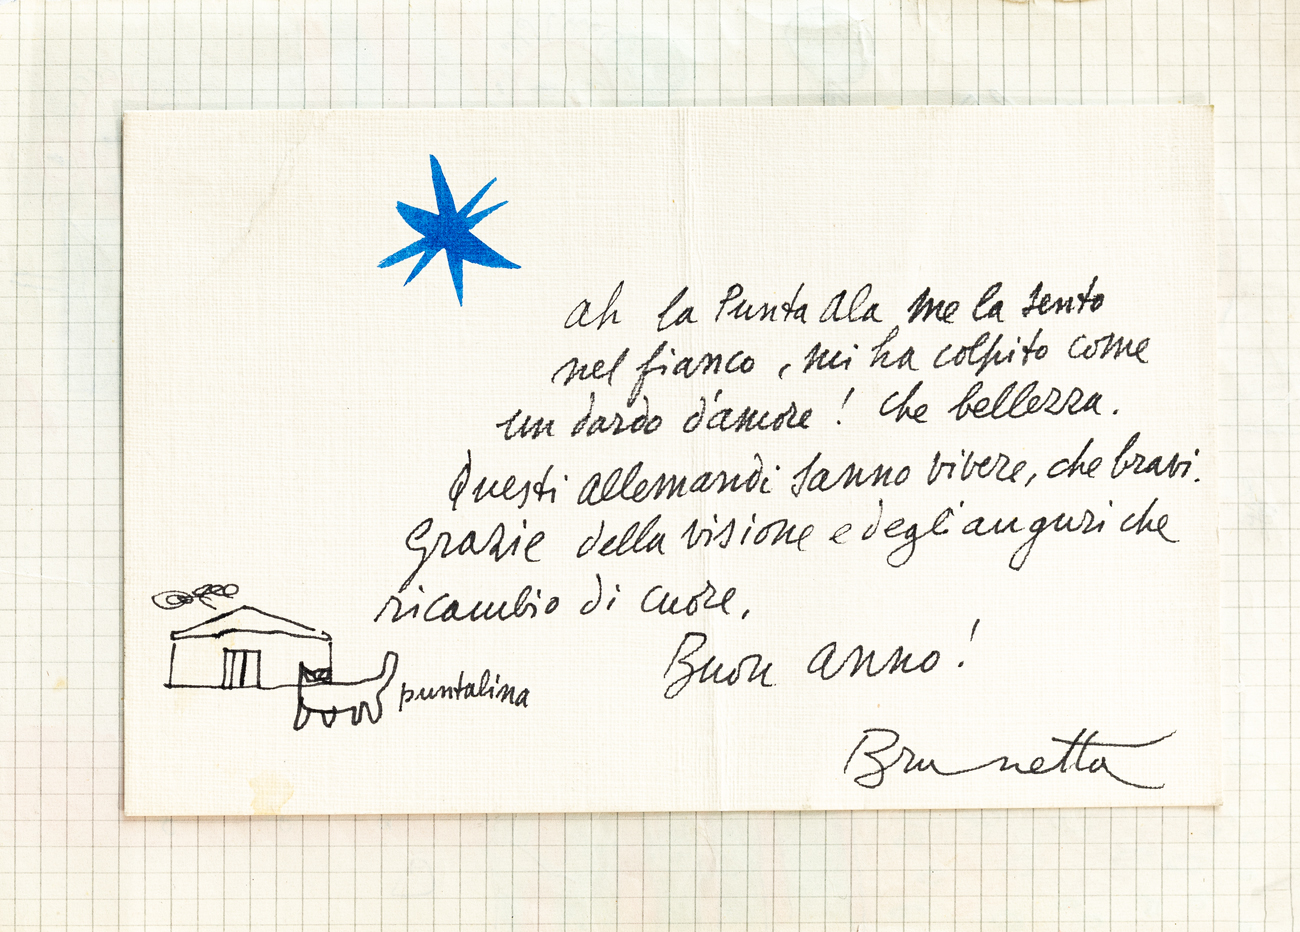 ah la Punta Ala me la sento
nel fianco, mi ha colpito come
un dardo d'amore! Che bellezza.
Questi allemandi sanno vivere, che bravi.
Grazie della visione e degli auguri che
ricambio di cuore,
Buon anno!
puntalina
Brunetta